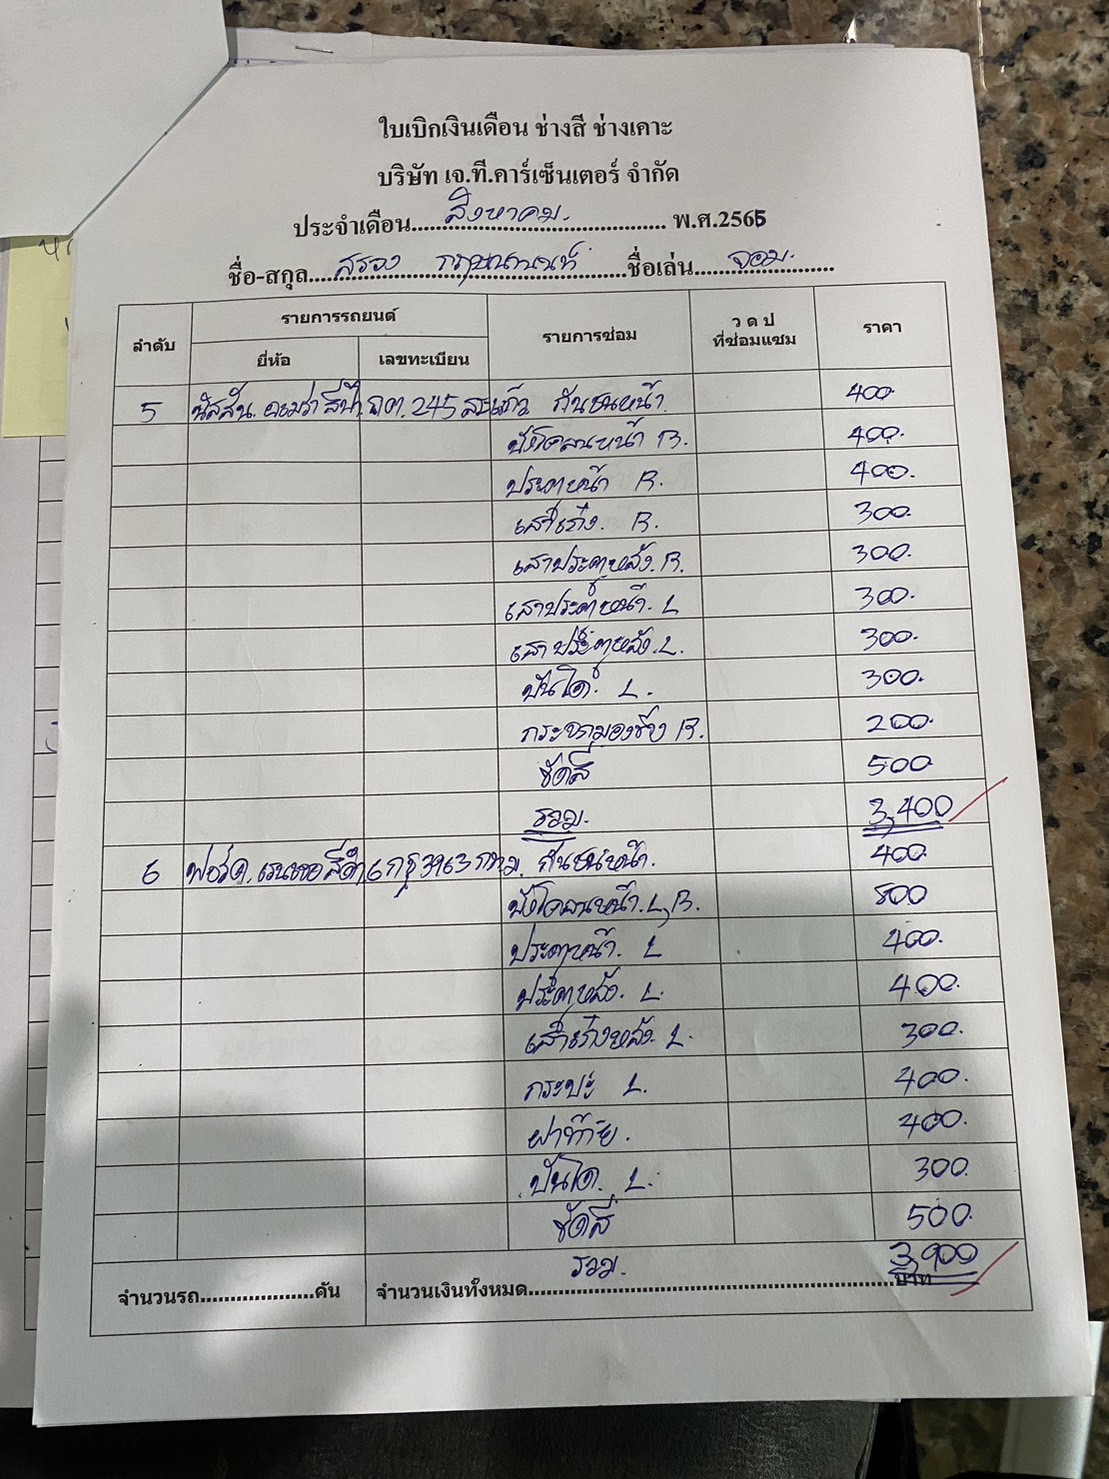 ใบเบิกเงินเดือน ช่างสี ช่างเคาะ
บริษัท เจ.ที.คาร์เซ็นเตอร์ จำกัด
ประจำเดือน สิงหาคม. พ.ศ.2565
ชื่อ-สกุล ชื่อเล่น จอม.
ลำดับ รายการรถยนต์ รายการซ่อม ว ด ป ที่ซ่อมแซม ราคา
ยี่ห้อ เลขทะเบียน
5 นิสสัน. 245 สระแก้ว กันชนหน้า. 400.
บังโคลนหน้า R. 400.
ประตูหน้า R. 400.
เสาเก๋ง. R. 300.
เสาประตูหลัง. R. 300.
เสาประตูหน้า. L 300.
เสาประตูหลัง. L. 300.
บันได. L. 300.
กระจกมองข้าง R. 200.
ขัดสี 500
รวม. 3,400
6 ฟอร์ด. สีดำ 3963 กทม. กันชนหน้า. 400
บังโคลนหน้า. L, R. 800
ประตูหน้า. L 400.
ประตูหลัง. L. 400.
เสาเก๋งหลัง. L. 300.
กระบะ L. 400.
ฝาท้าย. 400.
บันได. L. 300.
ขัดสี 500.
รวม. 3,900
จำนวนรถ คัน จำนวนเงินทั้งหมด บาท